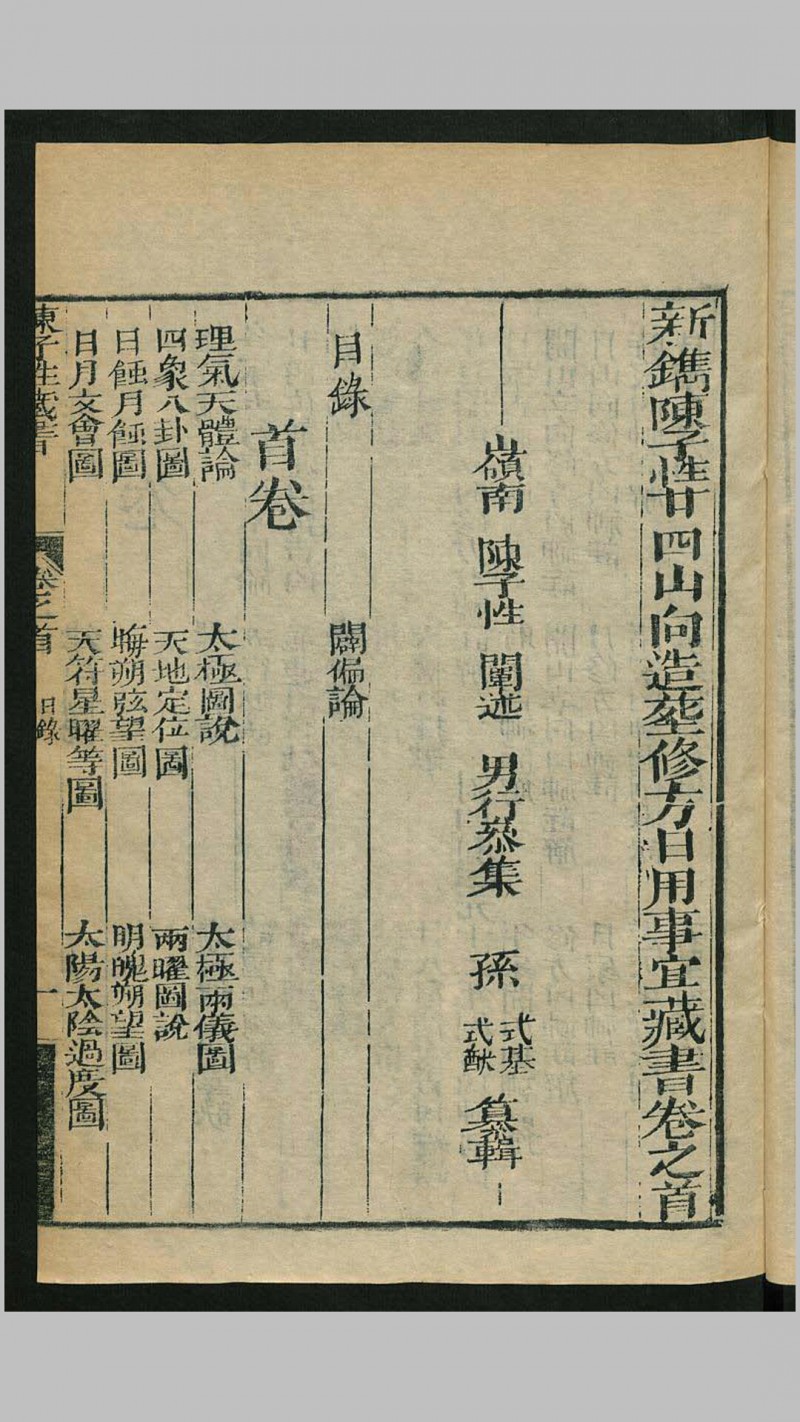 新鐫陳子性廿四山向造葬修方日用事宜藏書卷之首
嶺南 陳子性 闡述 男行恭集 孫 式基 式猷 纂輯
目錄 闢偏論
首卷
理氣天體論 太極圖說 太極兩儀圖
四象八卦圖 天地定位圖 兩曜圖說
日蝕月蝕圖 晦朔弦望圖 明魄朔望圖
日月交會圖 天符星曜等圖 太陽太陰過度圖
陳子性藏書 卷之首 目錄 一